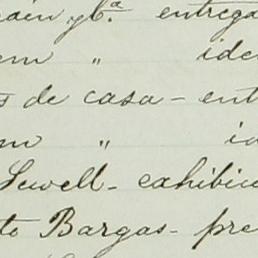 y Cª. entrega
em " ide
s de casa - ent
m " id
Sewell - exhibici
to Bargas - pre